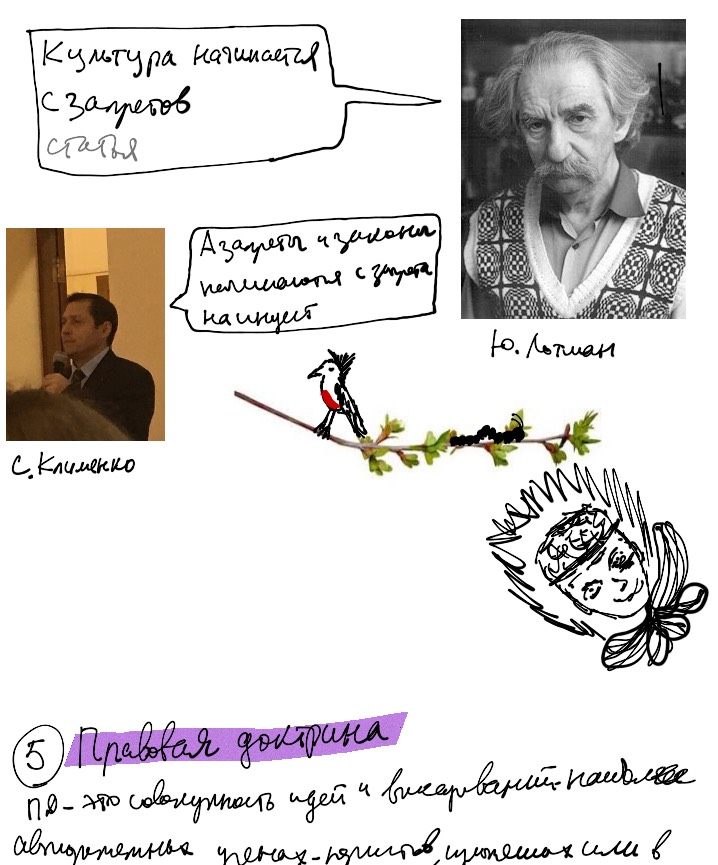 Культура начинается
с запретов
статья
А запреты и законы
начинаются с запрета
на инцест
Ю. Лотман
С. Клименко
5 Правовая доктрина
ПД - это совокупность идей и высказываний наиболее
авторитетных ученых-юристов, или в